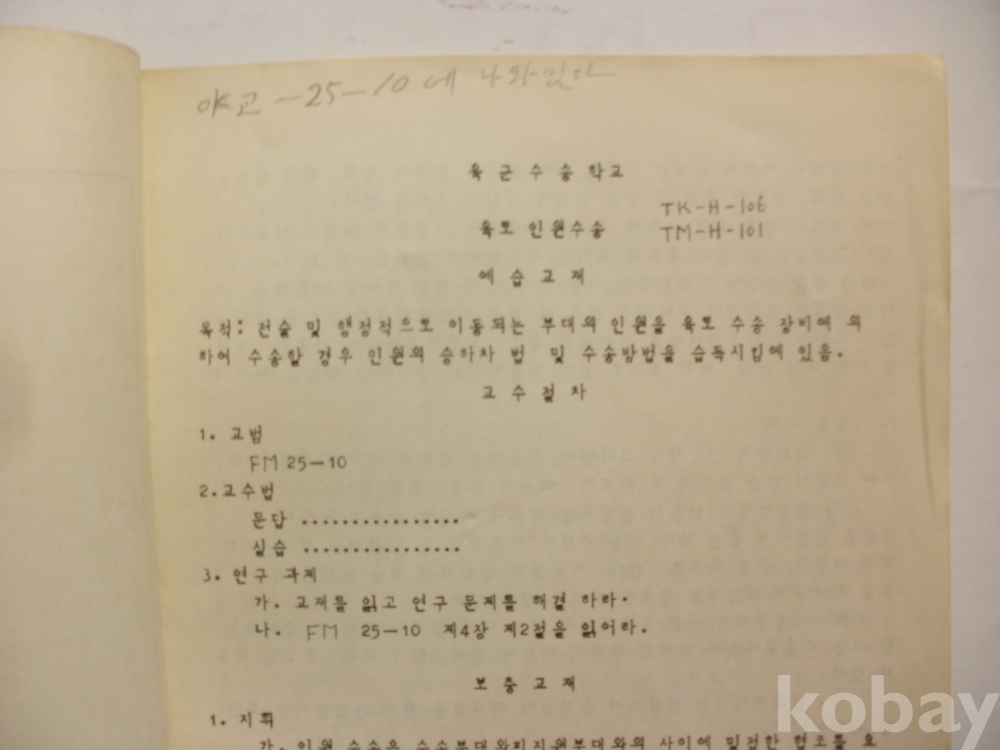 야교 -25-10 에 나와있다
육군수송학교
TK-H-106
육로 인원수송 TM-H-101
예습교재
목적: 전술 및 행정적으로 이동되는 부대의 인원을 육로 수송 장비에 의
하여 수송할 경우 인원의 승하차 법 및 수송방법을 습득시킴에 있음.
교수절차
1. 교범
FM 25-10
2.교수법
문답 ................
실습 ................
3. 연구 과제
가. 교재를 읽고 연구 문제를 해결 하라.
나. FM 25-10 제4장 제2절을 읽어라.
보충교재
1. 지휘
가. 인원 수송은 수송부대와피지원부대와의 사이에 밀접한 협조를 요
kobay